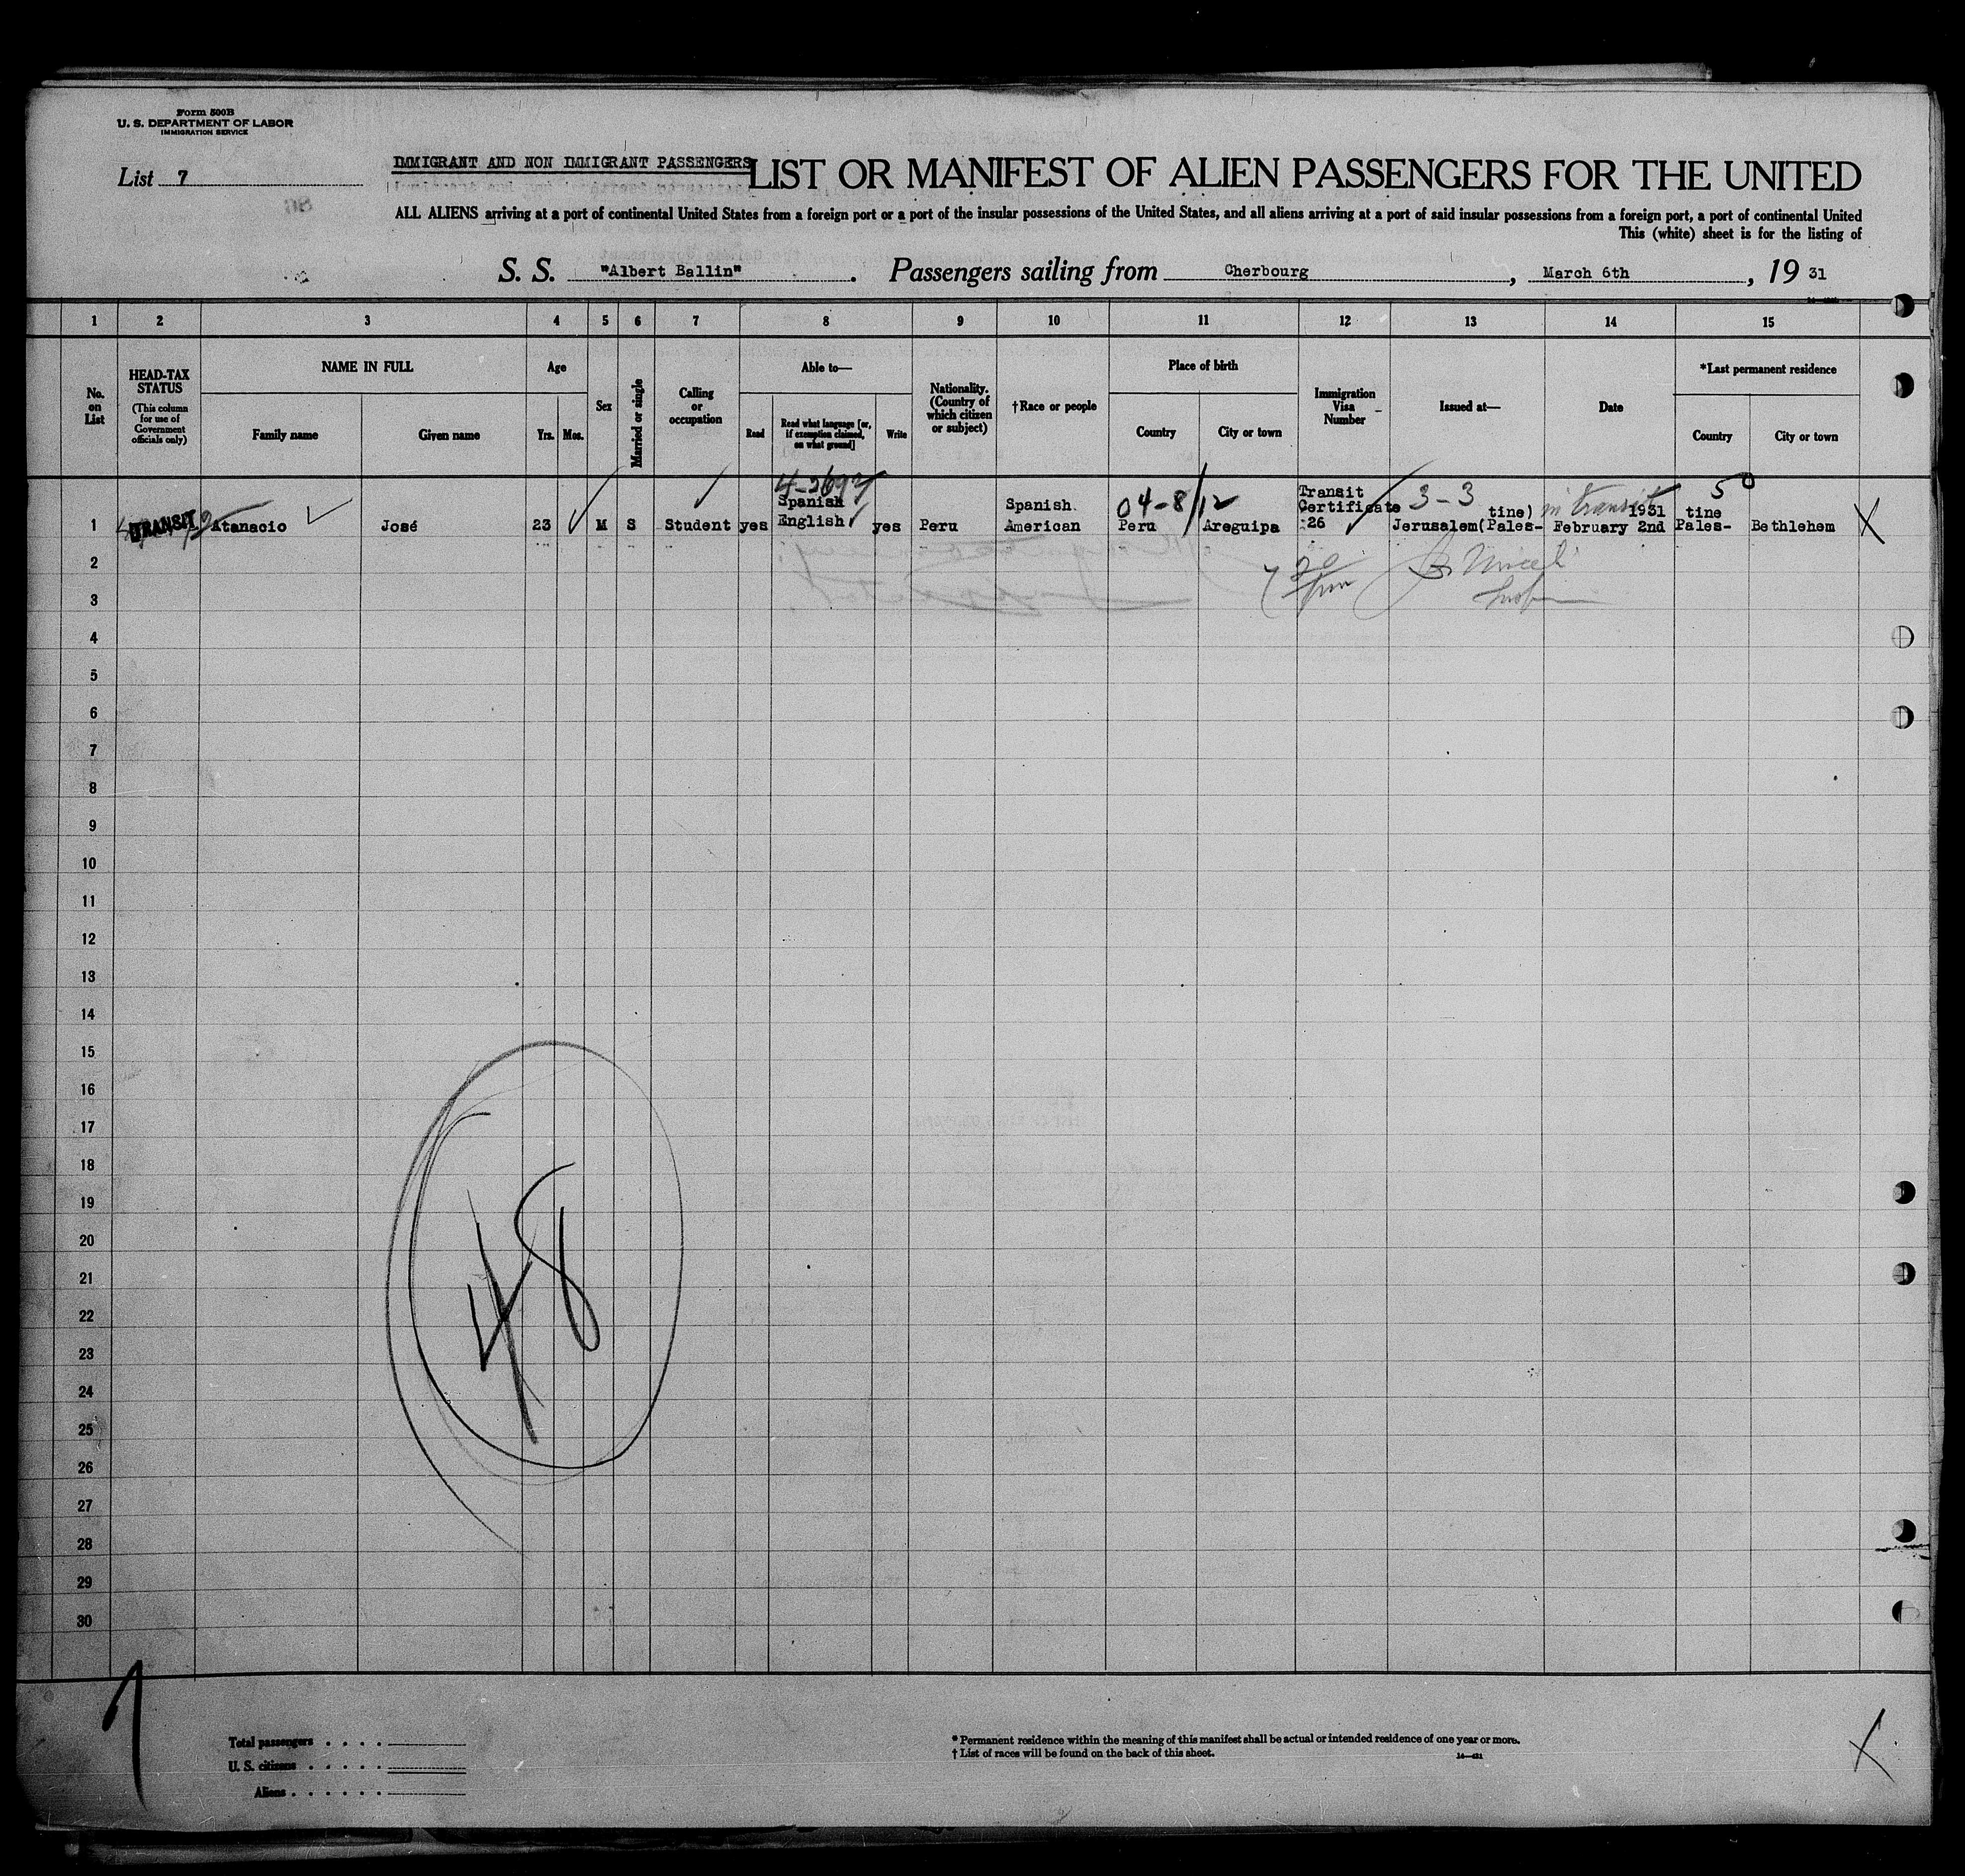 Form 500B
U. S. DEPARTMENT OF LABOR
IMMIGRATION SERVICE
List 7
IMMIGRANT AND NON IMMIGRANT PASSENGERS
LIST OR MANIFEST OF ALIEN PASSENGERS FOR THE UNITED
ALL ALIENS arriving at a port of continental United States from a foreign port or a port of the insular possessions of the United States, and all aliens arriving at a port of said insular possessions from a foreign port, a port of continental United
This (white) sheet is for the listing of
S. S. "Albert Ballin". Passengers sailing from Cherbourg, March 6th, 19 31
1 2 3 4 5 6 7 8 9 10 11 12 13 14 15
No. on List
HEAD-TAX STATUS
(This column for use of Government officials only)
NAME IN FULL
Family name Given name
Age
Yrs. Mos.
Sex
Married or single
Calling or occupation
Able to—
Read
Read what language [or, if exemption claimed, on what ground]
Write
Nationality. (Country of which citizen or subject)
†Race or people
Place of birth
Country City or town
Immigration Visa Number
Issued at—
Date
*Last permanent residence
Country City or town
1 TRANSIT Atanacio José 23 M S Student yes Spanish English yes Peru Spanish. American 04-8/12 Peru Areguipa Transit Certificate 26 3-3 Jerusalem(Palestine) in transit February 2nd 1931 Pales-tine 5 Bethlehem X
2
3
4
5
6
7
8
9
10
11
12
13
14
15
16
17
18
19
20
21
22
23
24
25
26
27
28
29
30
48
Total passengers . . . .
U. S. citizens . . . . .
Aliens . . . . . .
* Permanent residence within the meaning of this manifest shall be actual or intended residence of one year or more.
† List of races will be found on the back of this sheet.
X